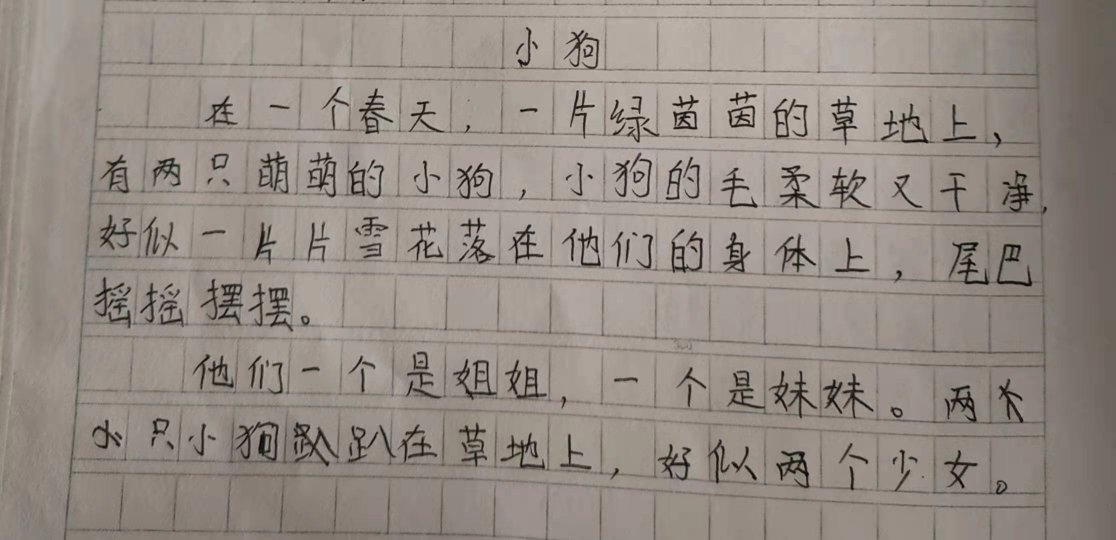 小狗
在一个春天，一片绿茵茵的草地上，
有两只萌萌的小狗，小狗的毛柔软又干净，
好似一片片雪花落在他们的身体上，尾巴
摇摇摆摆。
他们一个是姐姐，一个是妹妹。两
只小狗趴趴在草地上，好似两个少女。